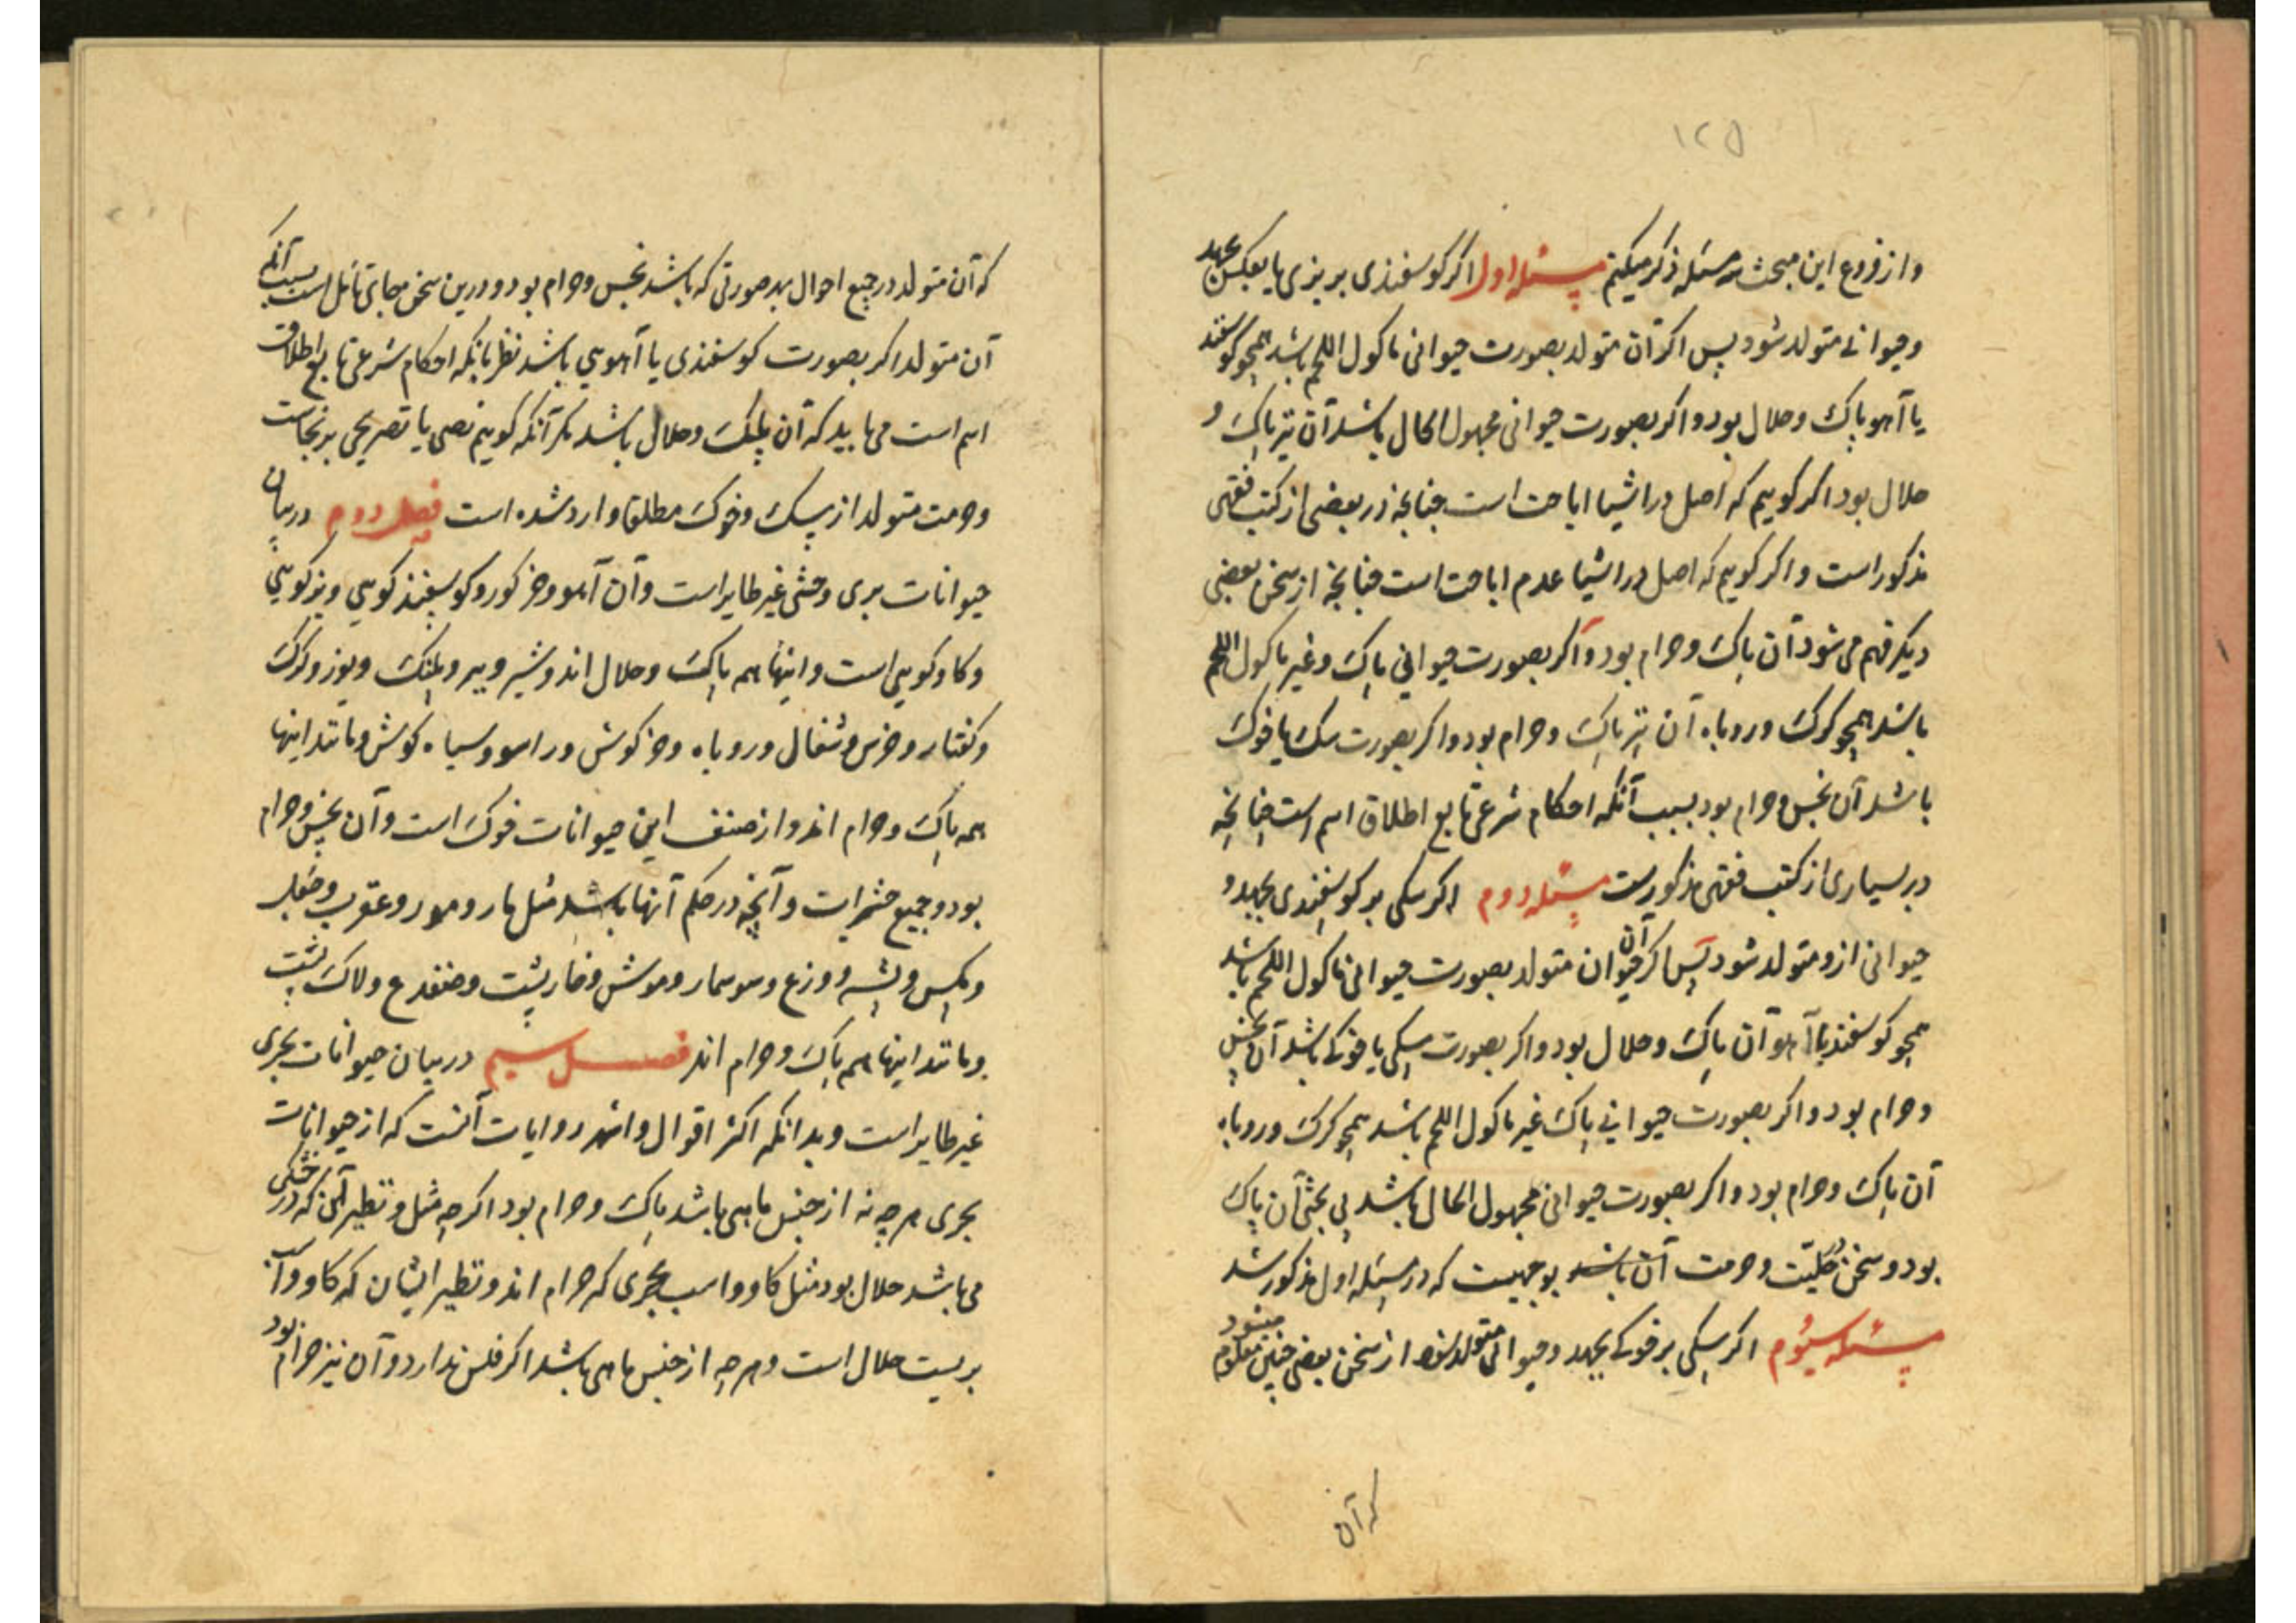 ١٢٥
و از فروع این مبحث سه مسئله ذکر میکنیم مسئله اول اکر کوسفندی بر بزی یا بعکس بجهد
و حیوانی متولد شود پس اکر آن متولد بصورت حیوانی ماکول اللحم باشد همچو کوسفند
یا آهو پاک و حلال بود و اکر بصورت حیوانی مجهول الحال باشد آن نیز پاک و
حلال بود اکر کوییم که اصل در اشیا اباحت است چنانچه در بعضی از کتب فقهی
مذکور است و اکر کوییم که اصل در اشیا عدم اباحت است چنانچه از سخن بعضی
دیکر فهم می شود آن پاک و حرام بود و اکر بصورت حیوانی پاک و غیر ماکول اللحم
باشد همچو کرک و روباه آن نیز پاک و حرام بود و اکر بصورت سک یا خوک
باشد آن نجس و حرام بود بسبب آنکه احکام شرعی تابع اطلاق اسم است چنانچه
در بسیاری از کتب فقهی مذکورست مسئله دوم اکر سکی بر کوسفندی بجهد و
حیوانی ازو متولد شود پس اکر آن حیوان متولد بصورت حیوانی ماکول اللحم باشد
همچو کوسفند یا آهو آن پاک و حلال بود و اکر بصورت سکی یا خوکی باشد آن نجس
و حرام بود و اکر بصورت حیوانی پاک غیر ماکول اللحم باشد همچو کرک و روباه
آن پاک و حرام بود و اکر بصورت حیوانی مجهول الحال باشد بی بحثی آن پاک
بود و سخن در حلیّت و حرمت آن باشد بوجهیست که در مسئله اول مذکور شد
مسئله سیُوم اکر سکی بر خوکی بجهد و حیوانی متولد شود از سخن بعضی چنین معلوم میشود
که آن
که آن متولد در جمیع احوال بهر صورتی که باشد نجس و حرام بود و درین سخن مجابی تامل است بسبب آنکه
آن متولد اکر بصورت کوسفندی یا آهویی باشد نظر بانکه احکام شرعی تابع اطلاق
اسم است می باید که آن پلنک و حلال باشد مکر آنکه کوییم نصی یا تصریحی بر نجاست
و حرمت متولد از سک و خوک مطلقا وارد شده است فصل دوم در بیان
حیوانات بری وحشی غیر طایر است و آن آهو و خر کور و کوسفند کوهی و بز کوهی
و کاو کوهی است و اینها همه پاک و حلال اند و شیر و ببر و پلنک و یوز و کرک
و کفتار و خرس و شغال و روباه و خرکوش و راسو و سیاه کوش و مانند اینها
همه پاک و حرام اند و از صنف این حیوانات خوک است و آن نجس و حرام
بود و جمیع حشرات و آنچه در حکم آنها باشد مثل مار و مور و عقرب و جعل
و مکس و پشه و وزع و سوسمار و موش و خارپشت و ضفدع و لاک پشت
و مانند اینها همه پاک و حرام اند فصل سیم در بیان حیوانات بحری
غیر طایر است و بدانکه اکثر اقوال و اشهر روایات آنست که از حیوانات
بحری هر چه نه از جنس ماهی باشد پاک و حرام بود اکرچه مثل و نظیر آن که در خشکی
می باشد حلال بود مثل کاو و اسب بحری که حرام اند و نظیر ایشان که کاو و اسب
بریست حلال است و هر چه از جنس ماهی باشد اکر فلس ندارد و آن نیز حرام بود